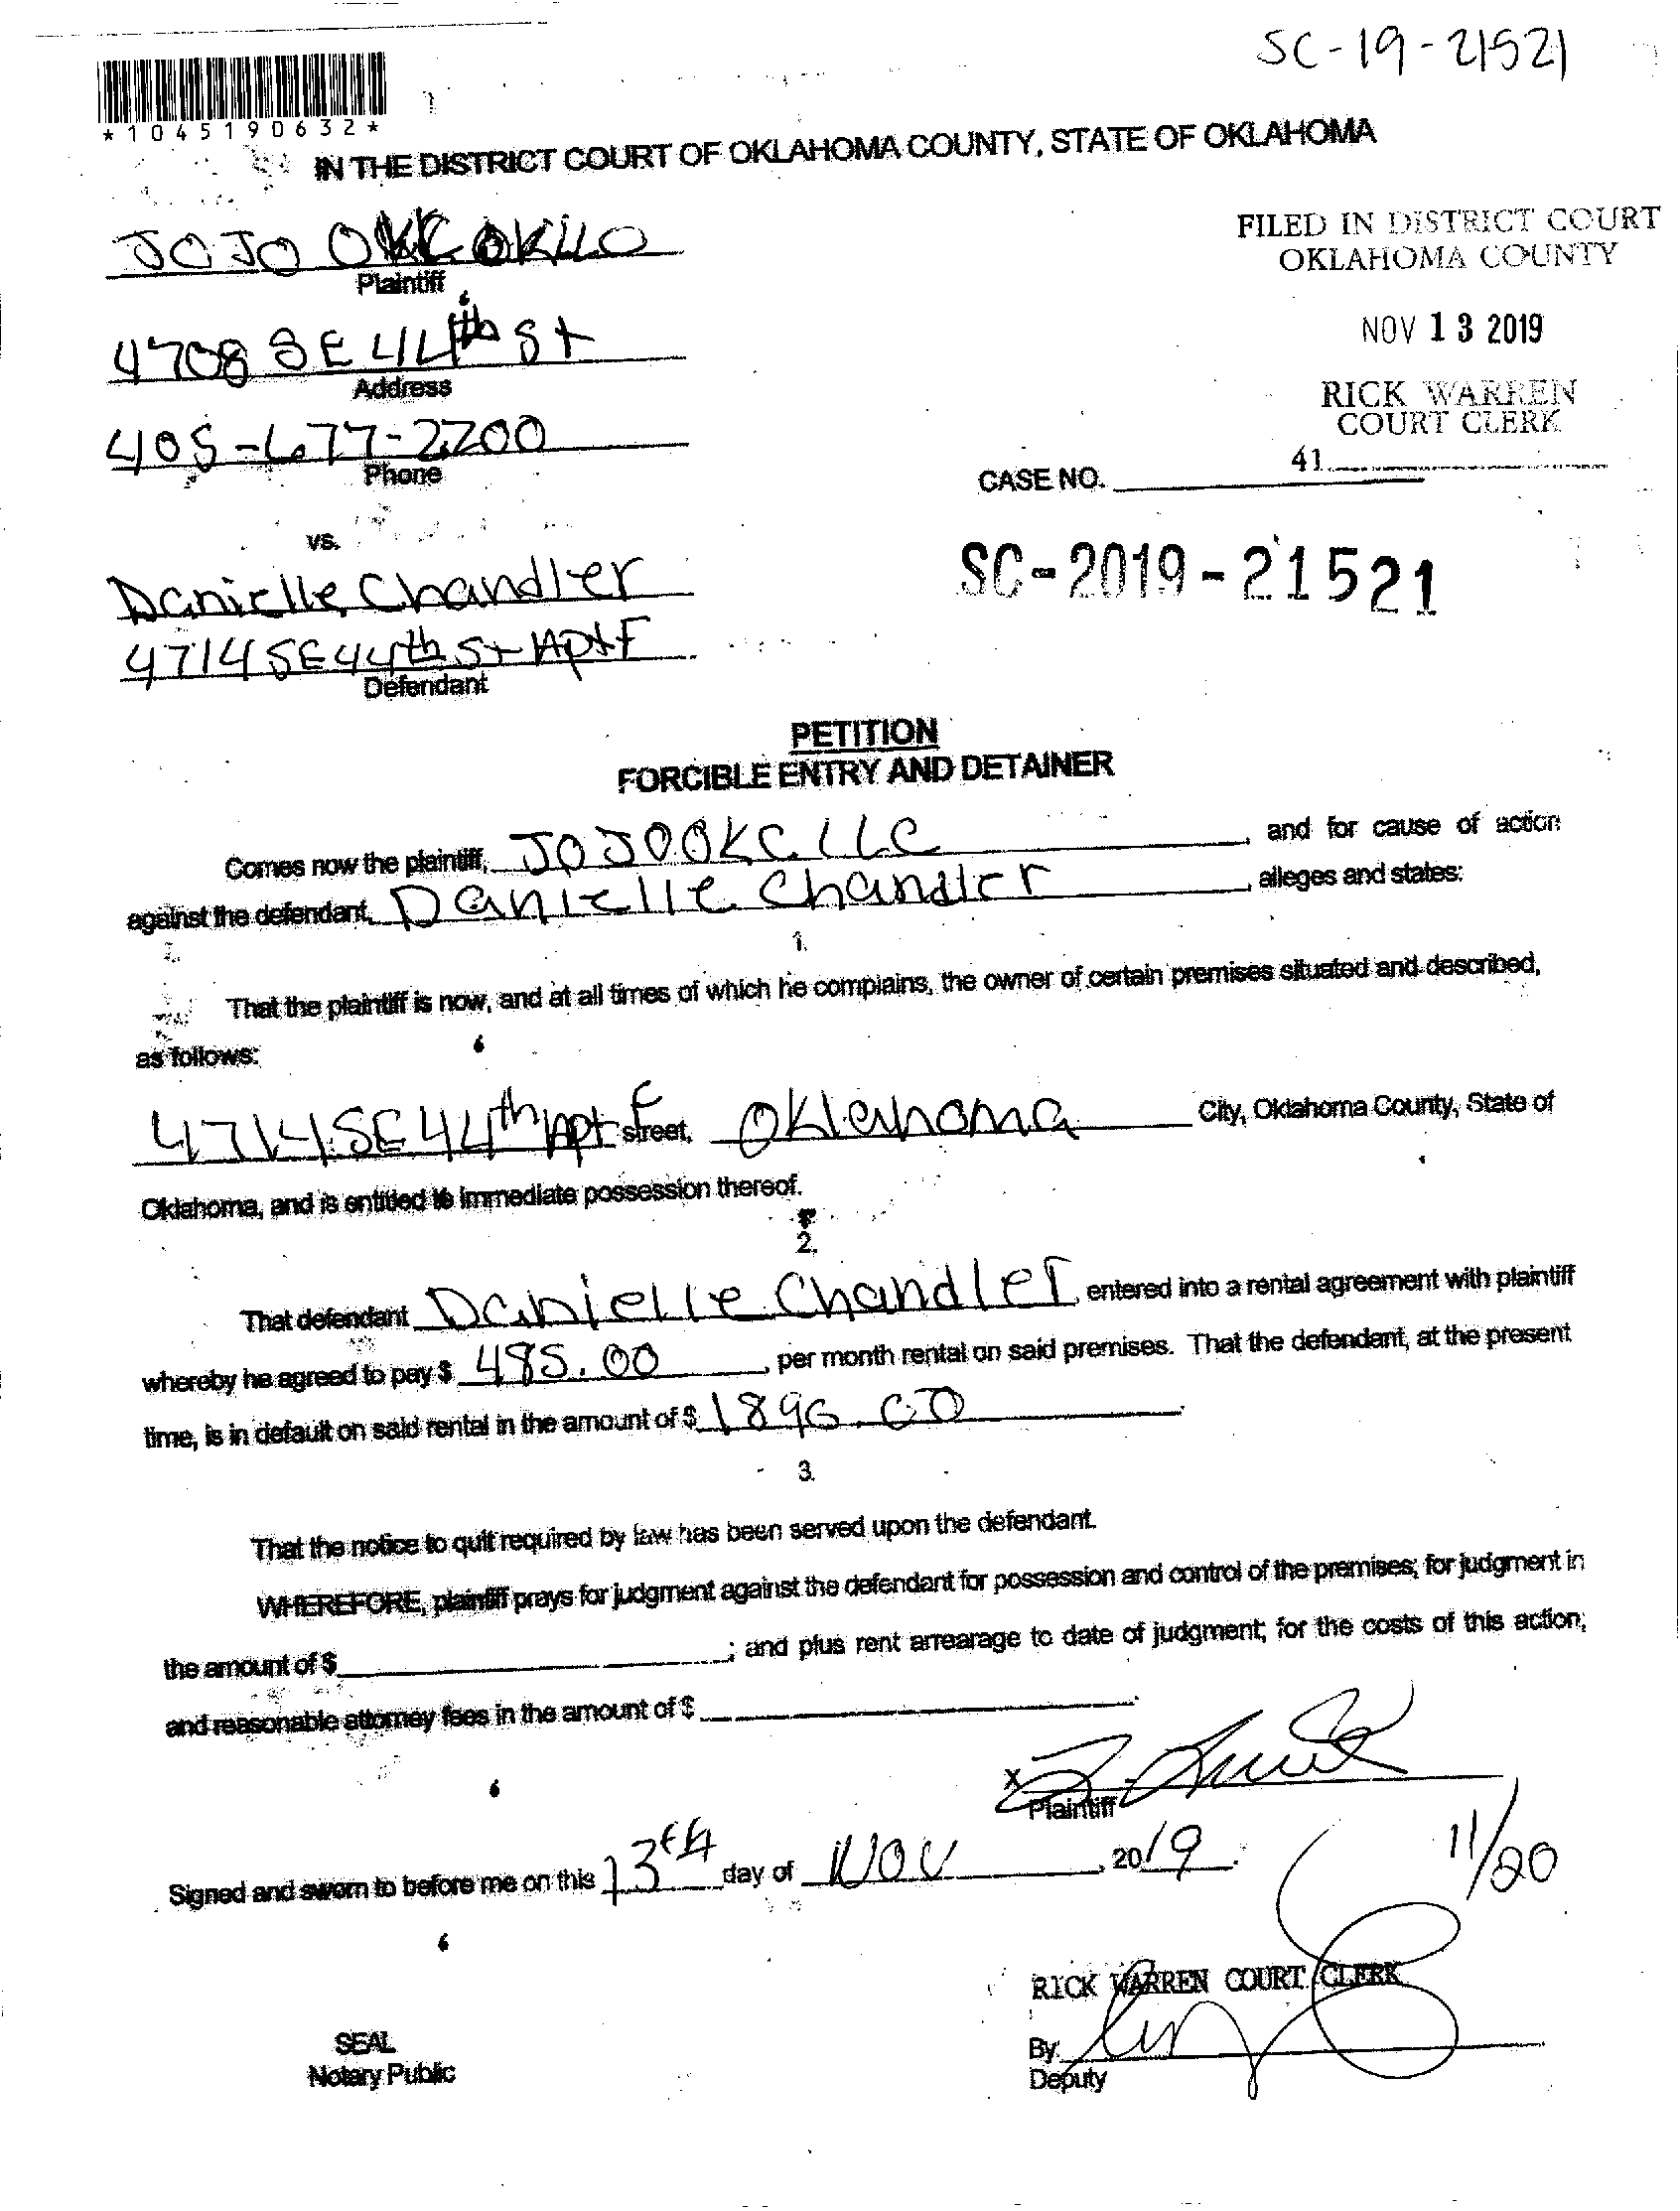 SC-19-21521
*1045190632*
IN THE DISTRICT COURT OF OKLAHOMA COUNTY, STATE OF OKLAHOMA
JOJO
Plaintiff
FILED IN DISTRICT COURT
OKLAHOMA COUNTY
4708 SE 44th St
Address
NOV 13 2019
RICK WARREN
COURT CLERK
405-677-2200
Phone
41
CASE NO.
vs.
SC-2019-21521
Danielle Chandler
4714 SE 44th St Apt F
Defendant
PETITION
FORCIBLE ENTRY AND DETAINER
Comes now the plaintiff, JOJO OKC. LLC, and for cause of action
against the defendant, Danielle Chandler, alleges and states:
1.
That the plaintiff is now, and at all times of which he complains, the owner of certain premises situated and described,
as follows:
4714 SE 44th Apt F street, Oklahoma City, Oklahoma County, State of
Oklahoma, and is entitled to immediate possession thereof.
2.
That defendant Danielle Chandler entered into a rental agreement with plaintiff
whereby he agreed to pay $ 485.00, per month rental on said premises. That the defendant, at the present
time, is in default on said rental in the amount of $ 1896.00.
3.
That the notice to quit required by law has been served upon the defendant.
WHEREFORE, plaintiff prays for judgment against the defendant for possession and control of the premises; for judgment in
the amount of $ ; and plus rent arrearage to date of judgment; for the costs of this action;
and reasonable attorney fees in the amount of $ .
X
Plaintiff
Signed and sworn to before me on this 13th day of NOV, 2019.
11/20
RICK WARREN COURT CLERK
By:
Deputy
SEAL
Notary Public